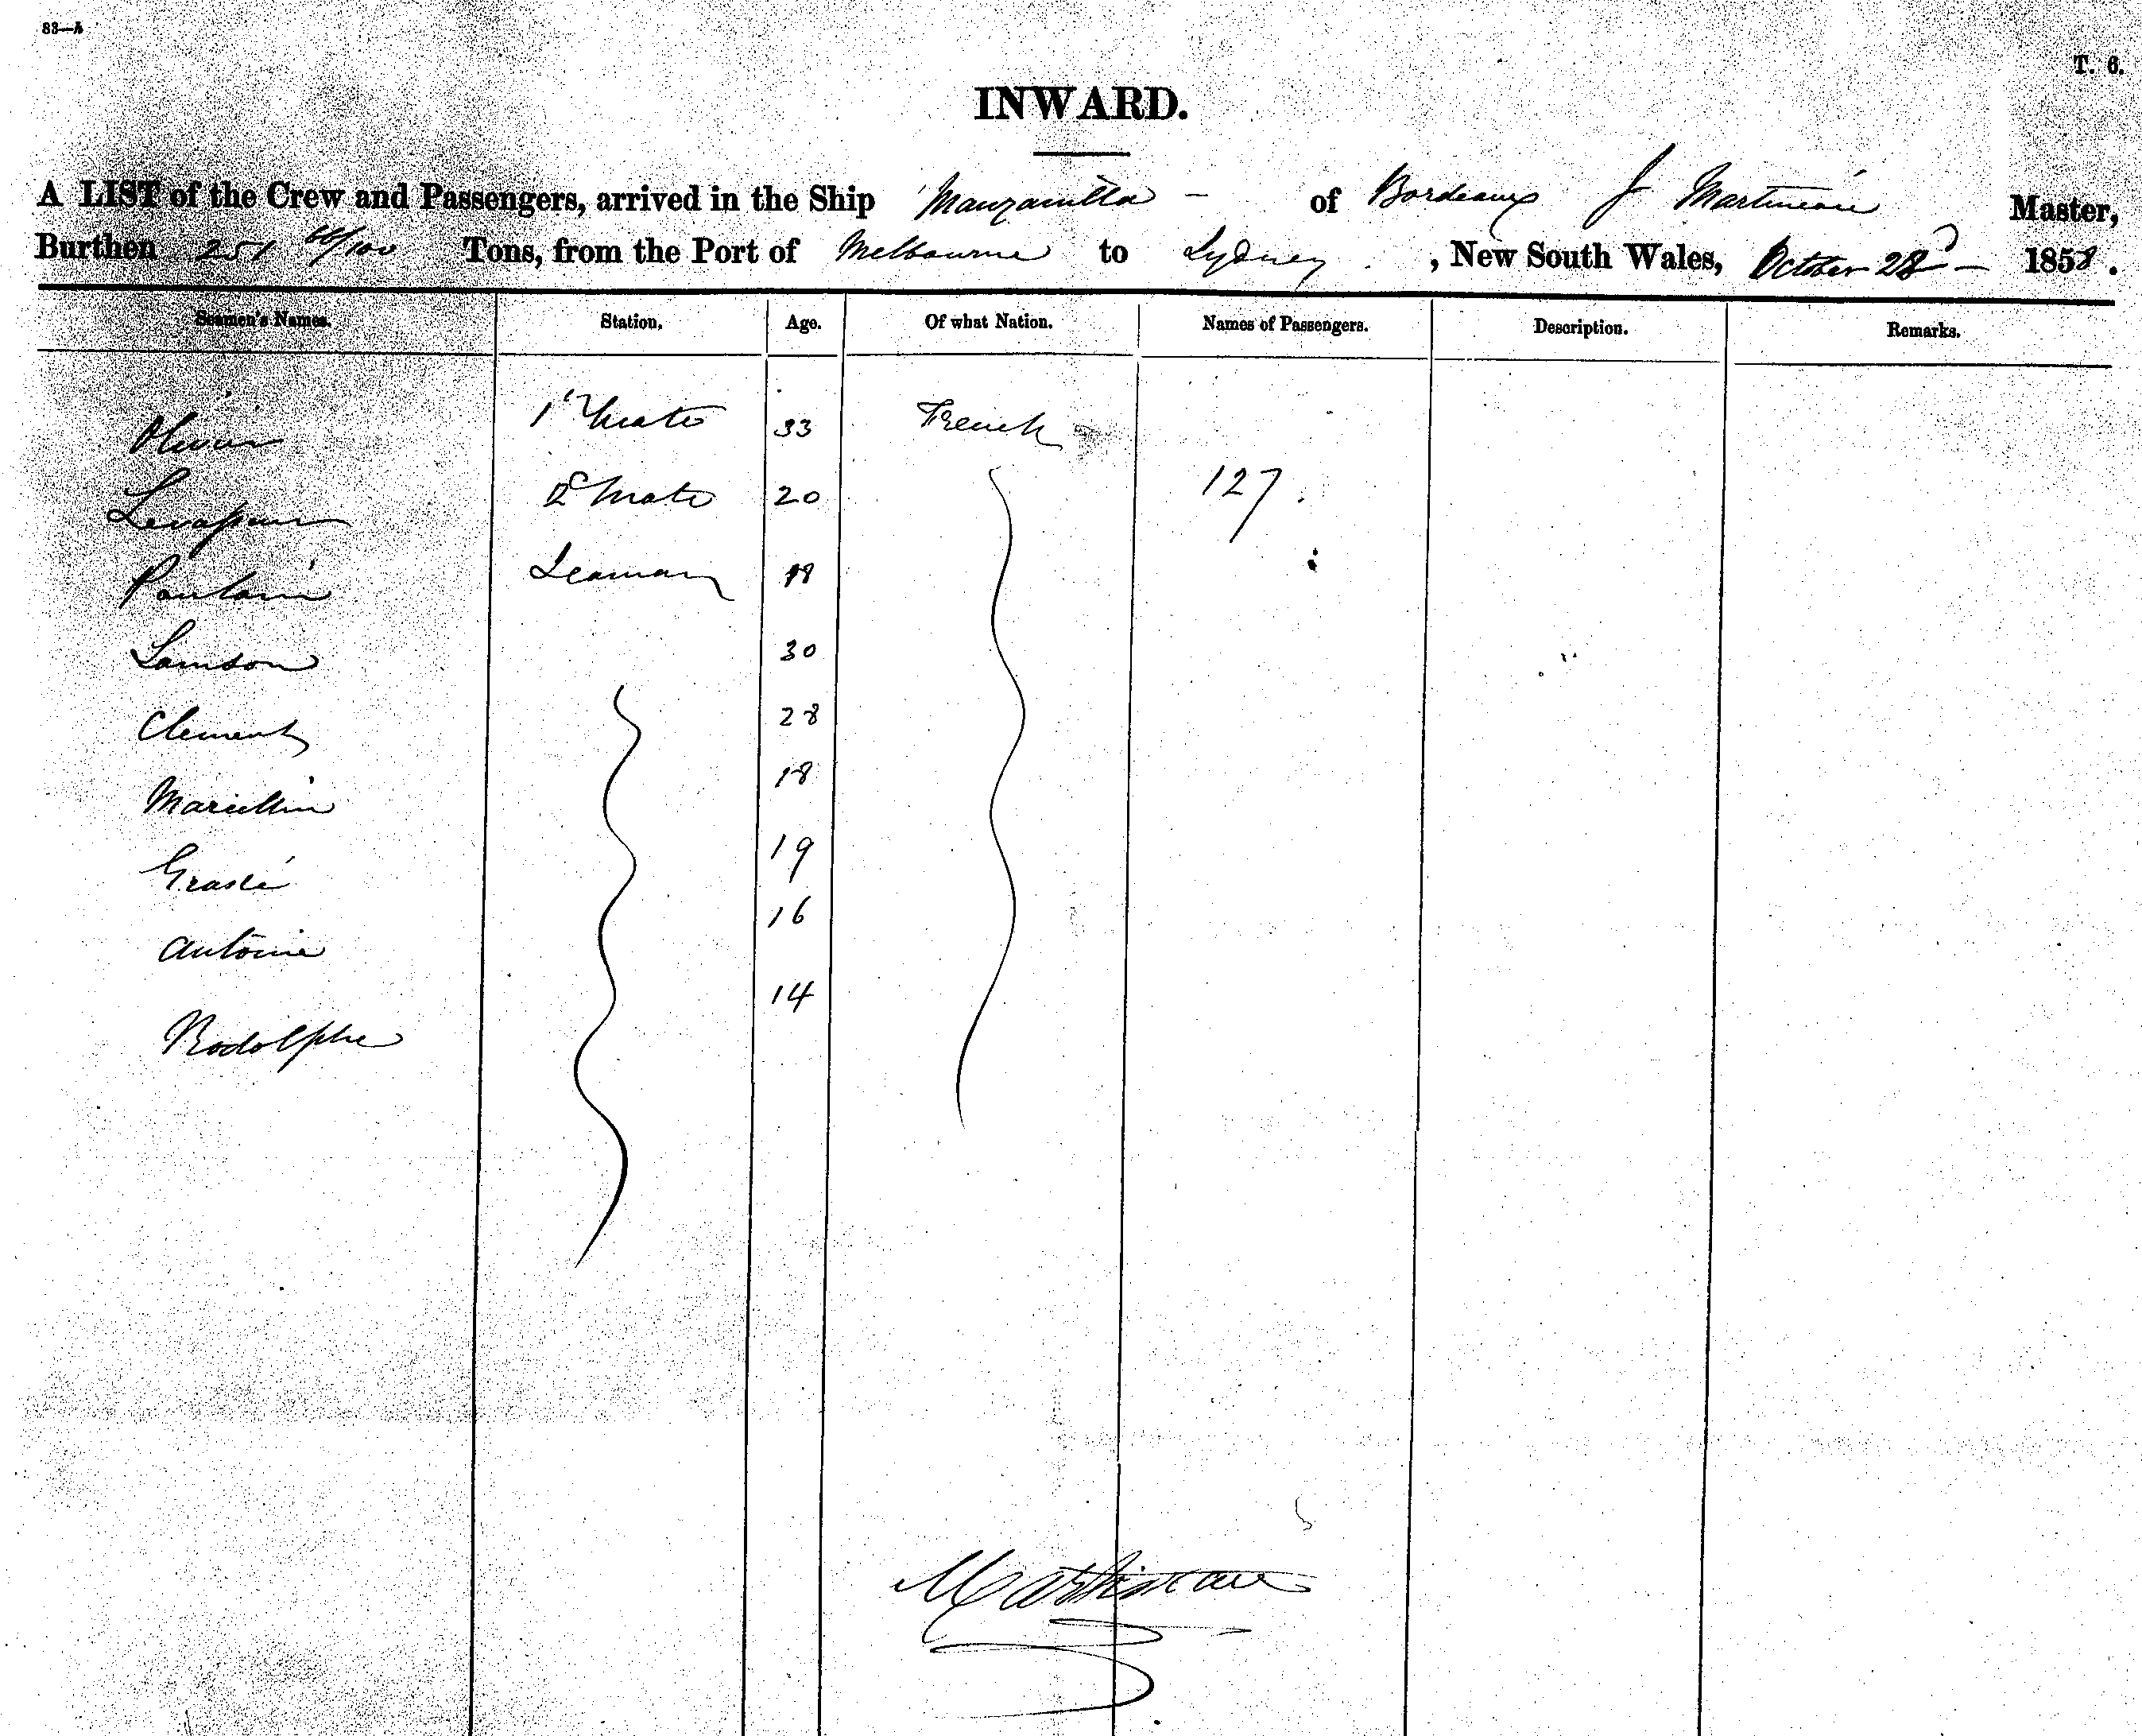 83—A
T. 6.
INWARD.
A LIST of the Crew and Passengers, arrived in the Ship Manzanilla - of Bordeaux J Martineau Master,
Burthen 251 /100 Tons, from the Port of Melbourne to Sydney , New South Wales, October 28 - 1858.
Seamen's Names. Station. Age. Of what Nation. Names of Passengers. Description. Remarks.
Olivier 1r Mate 33 French
Levasseur 2e Mate 20 127.
Poulain Seaman 18
Samson 30
Clement 28
Marcellin 18
19
Antoine 16
Rodolphe 14
Martineau